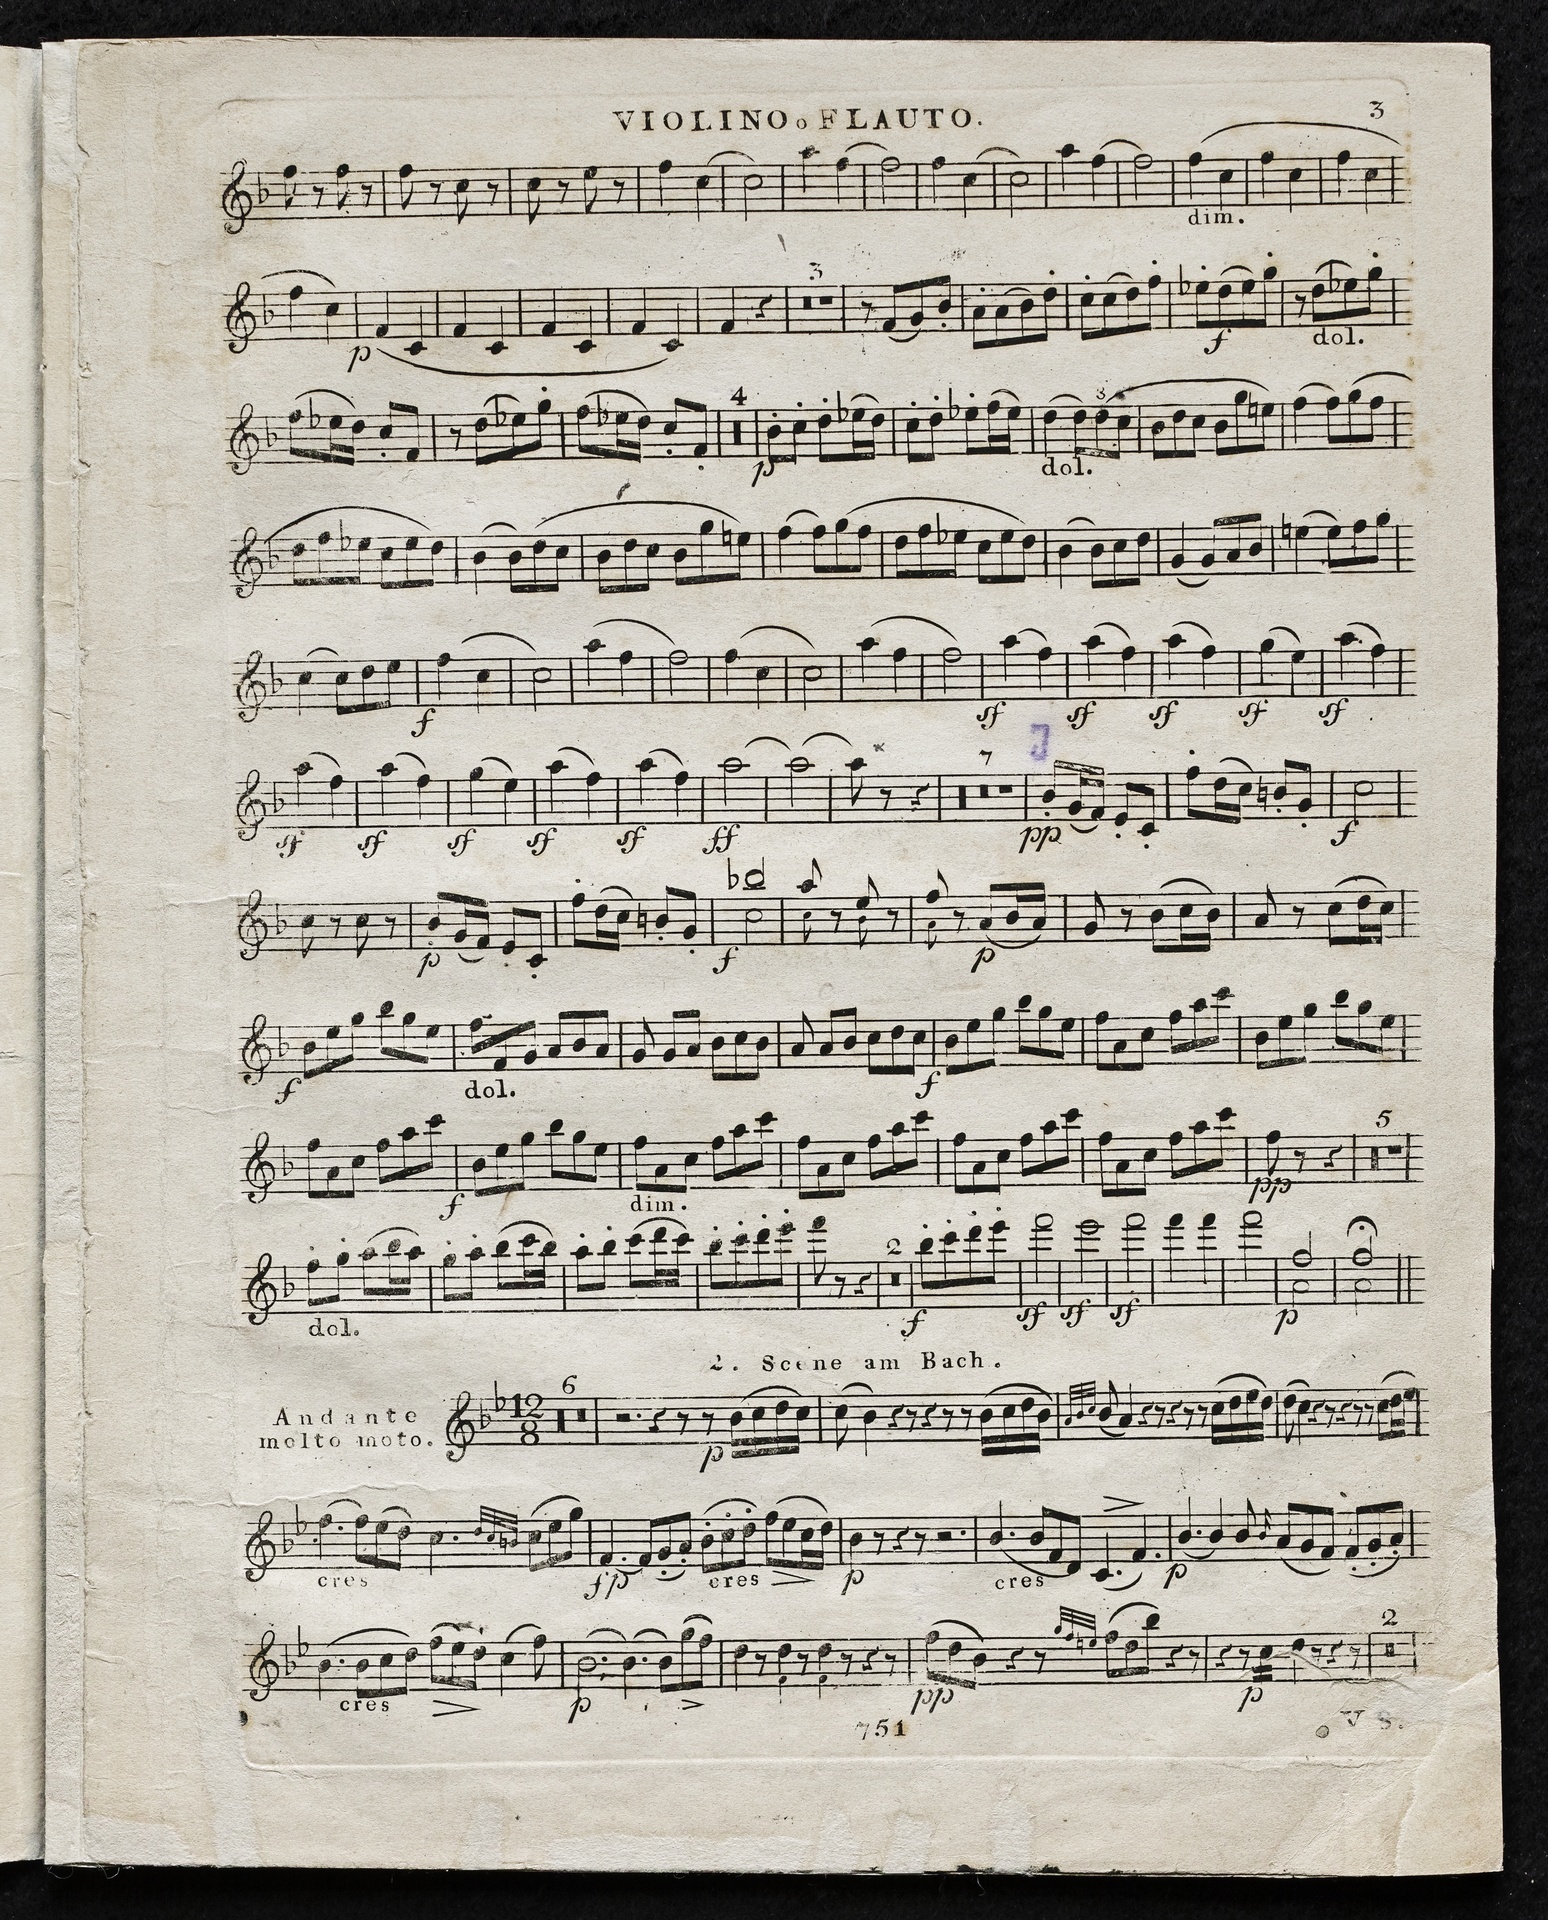 VIOLINO o FLAUTO.
3
dim.
3
p
f
dol.
4
3
p
dol.
f
sf sf sf sf sf
7
J
sf sf sf sf sf ff
pp
f
p
f
p
f
dol.
f
5
f
dim.
pp
2
dol.
f
sf sf sf
p
2. Scene am Bach.
Andante
molto moto.
12
8
6
p
cres
fp
cres
p
cres
p
2
cres
p
pp
p
751
V S.